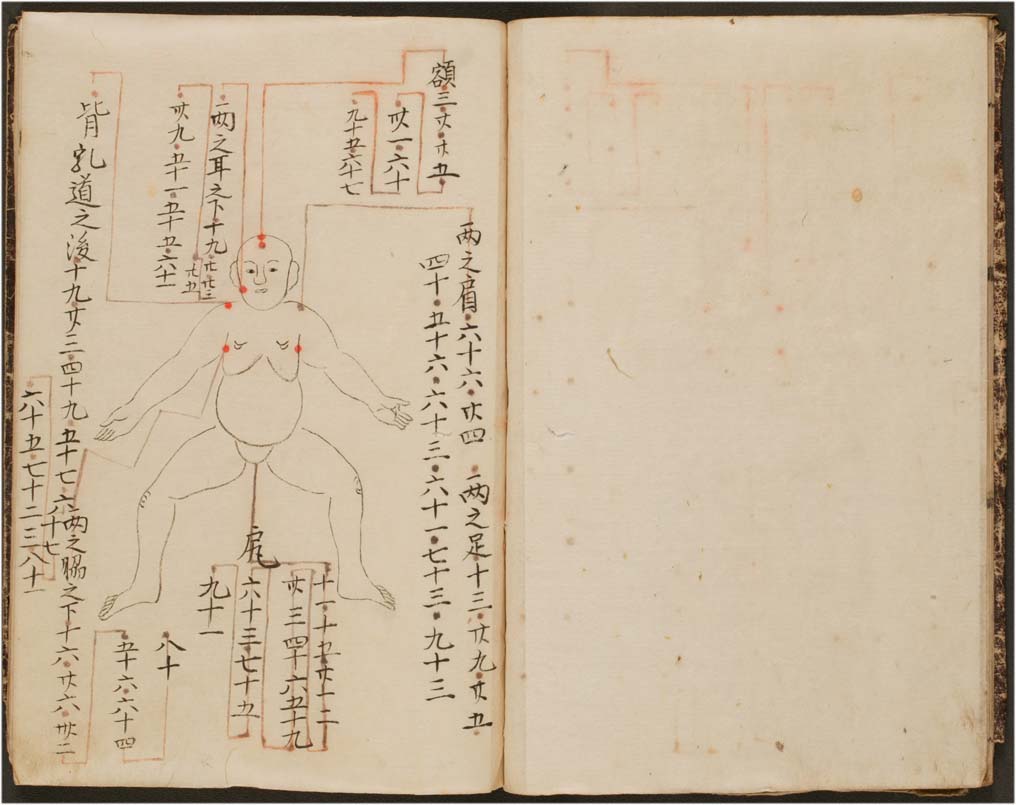 額三・廿・廿五
廿一・六十
九十五六十七
両之肩・六十六・廿四
両之足十三・廿九・廿五
四十・五十六・六十三・六十一・七十三・九十三
一両之耳之下十九・廿廿三
廿五
廿九・五十一・五十五・六十一
背乳道之後十九廿三四十九五十七六十七
両之脇之下十六廿六卅二
六十五・七十二三八十一
十一・十五廿十二
廿三四十六五十九
六十三・七十五
九十一
八十
五十六六十四